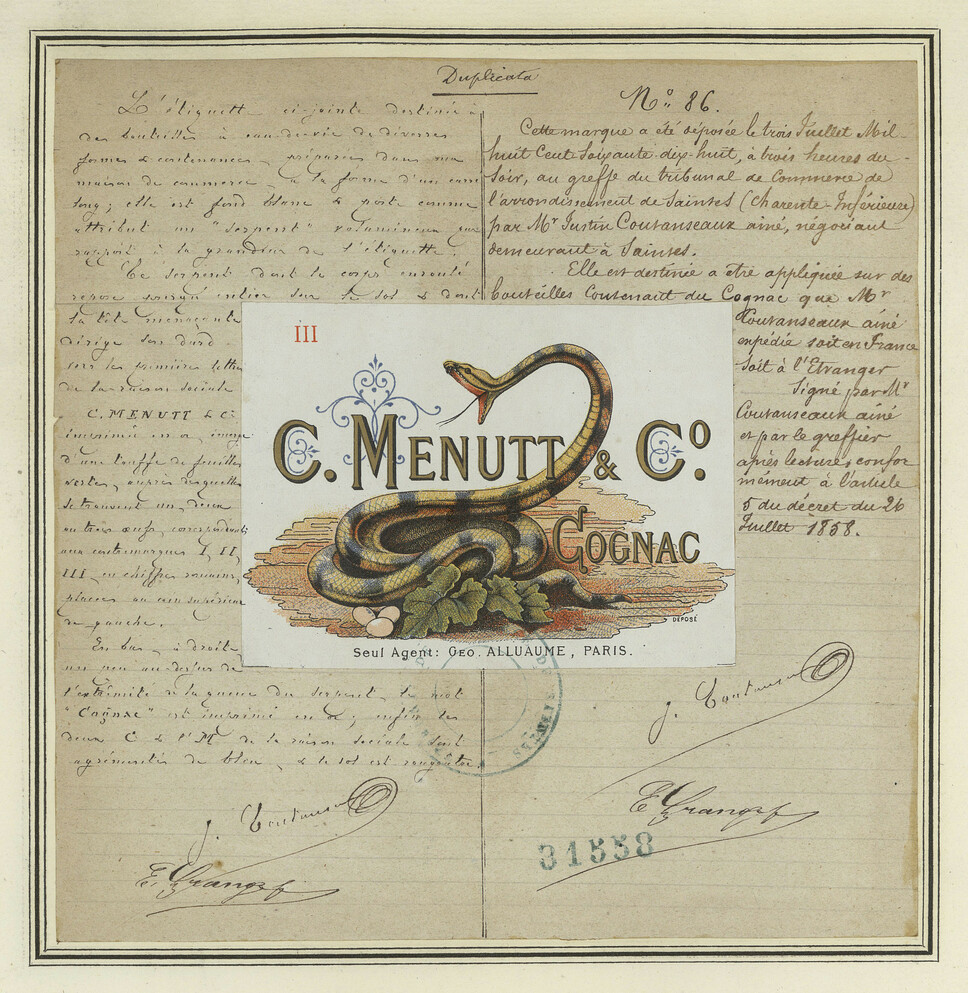 Duplicata
L'étiquette ci-jointe destinée à
des bouteilles à eau-de-vie de diverses
formes & contenances, préparées dans ma
maison de commerce, a la forme d'un carré
long; elle est fond blanc & porte comme
attribut un "serpent" volumineux par
rapport à la grandeur de l'étiquette.
Ce serpent dont le corps enroulé
repose presque entier sur le sol & dont
la tête menaçante
dirige son dard
vers les premières lettres
de la raison sociale
C. MENUTT & Cº
imprimée en
d'une touffe de feuilles
vertes, auprès desquelles
se trouvent un, deux
ou trois œufs, correspondant
aux contremarques I, II,
III en chiffres romains,
placés au coin supérieur
de gauche.
En bas, à droite
un peu au-dessus de
l'extrémité de la queue du serpent, le mot
"Cognac" est imprimé en or; enfin les
deux C & l'M de la raison sociale sont
agrémentés de bleu, & le sol est rougeâtre.
J. Coutanseaux
E. Grangé
Nº 86.
Cette marque a été déposée le trois Juillet Mil-
huit Cent Soixante-dix-huit, à trois heures du
Soir, au greffe du tribunal de Commerce de
l'arrondissement de Saintes (Charente-Inférieure)
par Mr Justin Coutanseaux ainé, négociant
demeurant à Saintes.
Elle est destinée a être appliquée sur des
bouteilles Contenant du Cognac que Mr
Coutanseaux ainé
expédie soit en France
soit à l'Etranger
Signé par Mr
Coutanseaux ainé
et par le greffier
après lecture, confor
mément à l'article
5 du décret du 26
Juillet 1858.
J. Coutanseaux
E. Grangé
31558
III
C. MENUTT & Cº.
COGNAC
DÉPOSÉ
Seul Agent: GEO. ALLUAUME, PARIS.